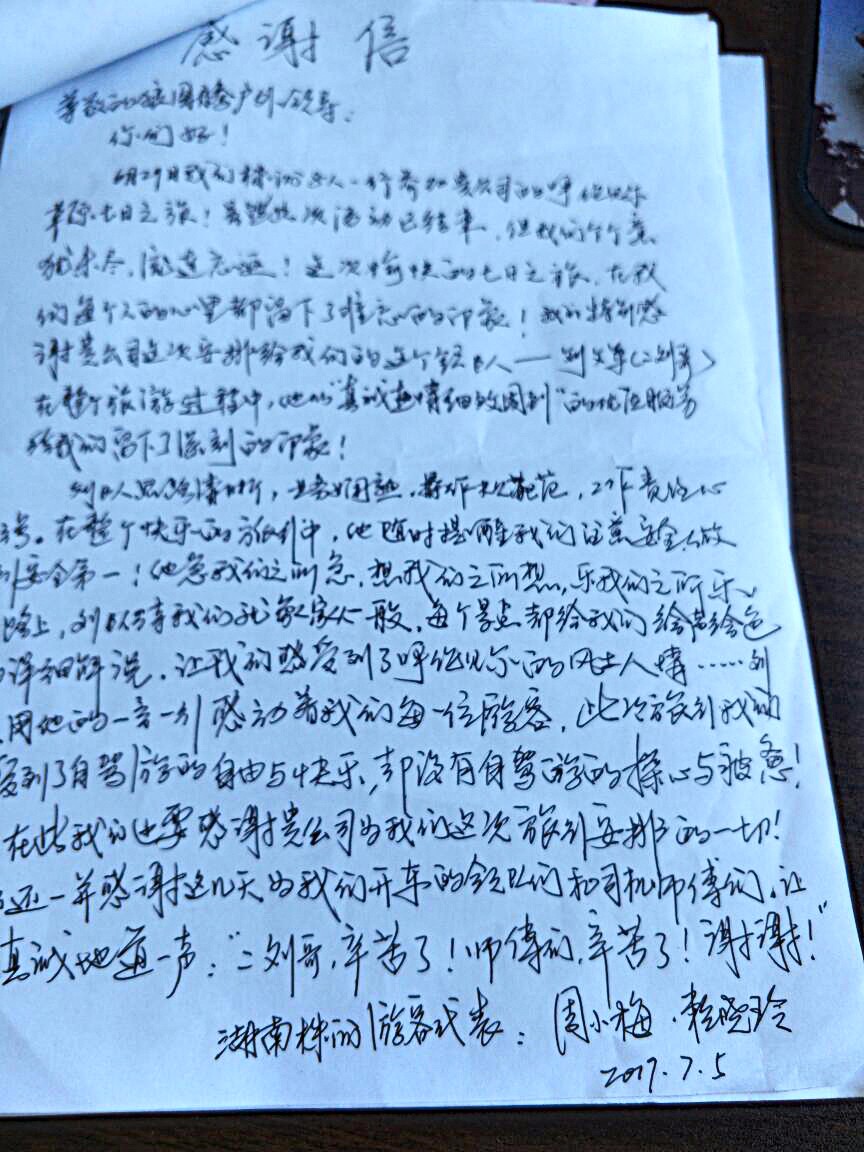 感谢信
尊敬的 户外领导：
你们好！
6月29日我们株洲 人一行参加贵公司的呼伦贝尔
草原七日之旅！虽然此次活动已结束，但我们个个意
犹未尽，流连忘返！这次愉快的七日之旅，在我
们每个人的心里都留下了难忘的印象！我们特别感
谢贵公司这次安排给我们的这个领队人——刘 （二刘哥）
在整个旅游过程中，他的“真诚热情细致周到”的优质服务
给我们留下了深刻的印象！
刘队人思路清晰，业务娴熟，操作规范，工作责任心
强。在整个快乐的旅行中，他随时提醒我们注意安全，做
到安全第一！他急我们之所急，想我们之所想，乐我们之所乐、
路上，刘队待我们就象家人一般，每个景点都给我们绘声绘色
的详细解说，让我们感受到了呼伦贝尔的风土人情……刘
用他的一言一行感动着我们每一位游客，此次旅行我们
受到了自驾游的自由与快乐，却没有自驾游的操心与疲惫！
在此我们也要感谢贵公司为我们这次旅行安排的一切！
还一并感谢这几天为我们开车的领队们和司机师傅们，让
真诚地道一声：“二刘哥，辛苦了！师傅们，辛苦了！谢谢！”
湖南株洲游客代表：周小梅、 晓玲
2017.7.5